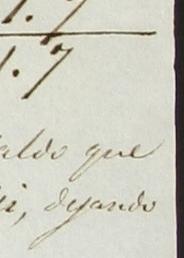 1.7
1.7
aldo que
i, dejando